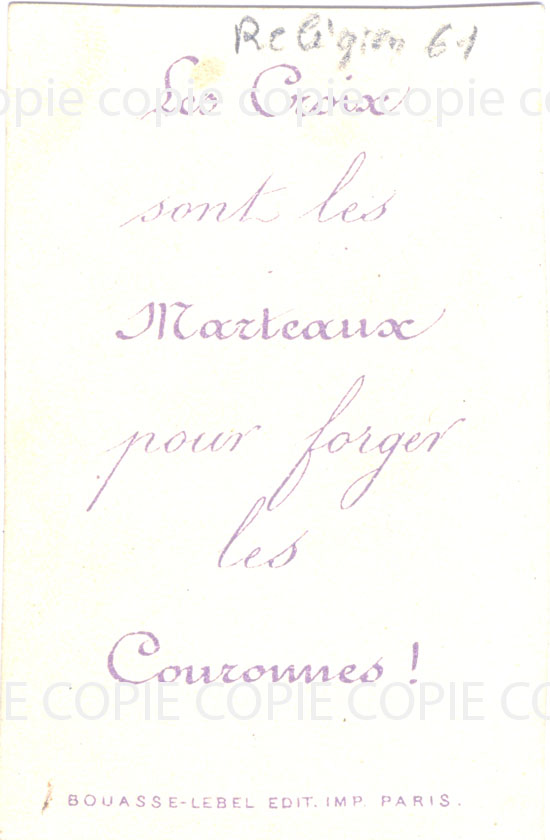 Religion 61
Les Croix
copie copie copie copie copie
sont les
Marteaux
pour forger
les
Couronnes !
E COPIE COPIE COPIE COPIE C
BOUASSE-LEBEL EDIT. IMP. PARIS.